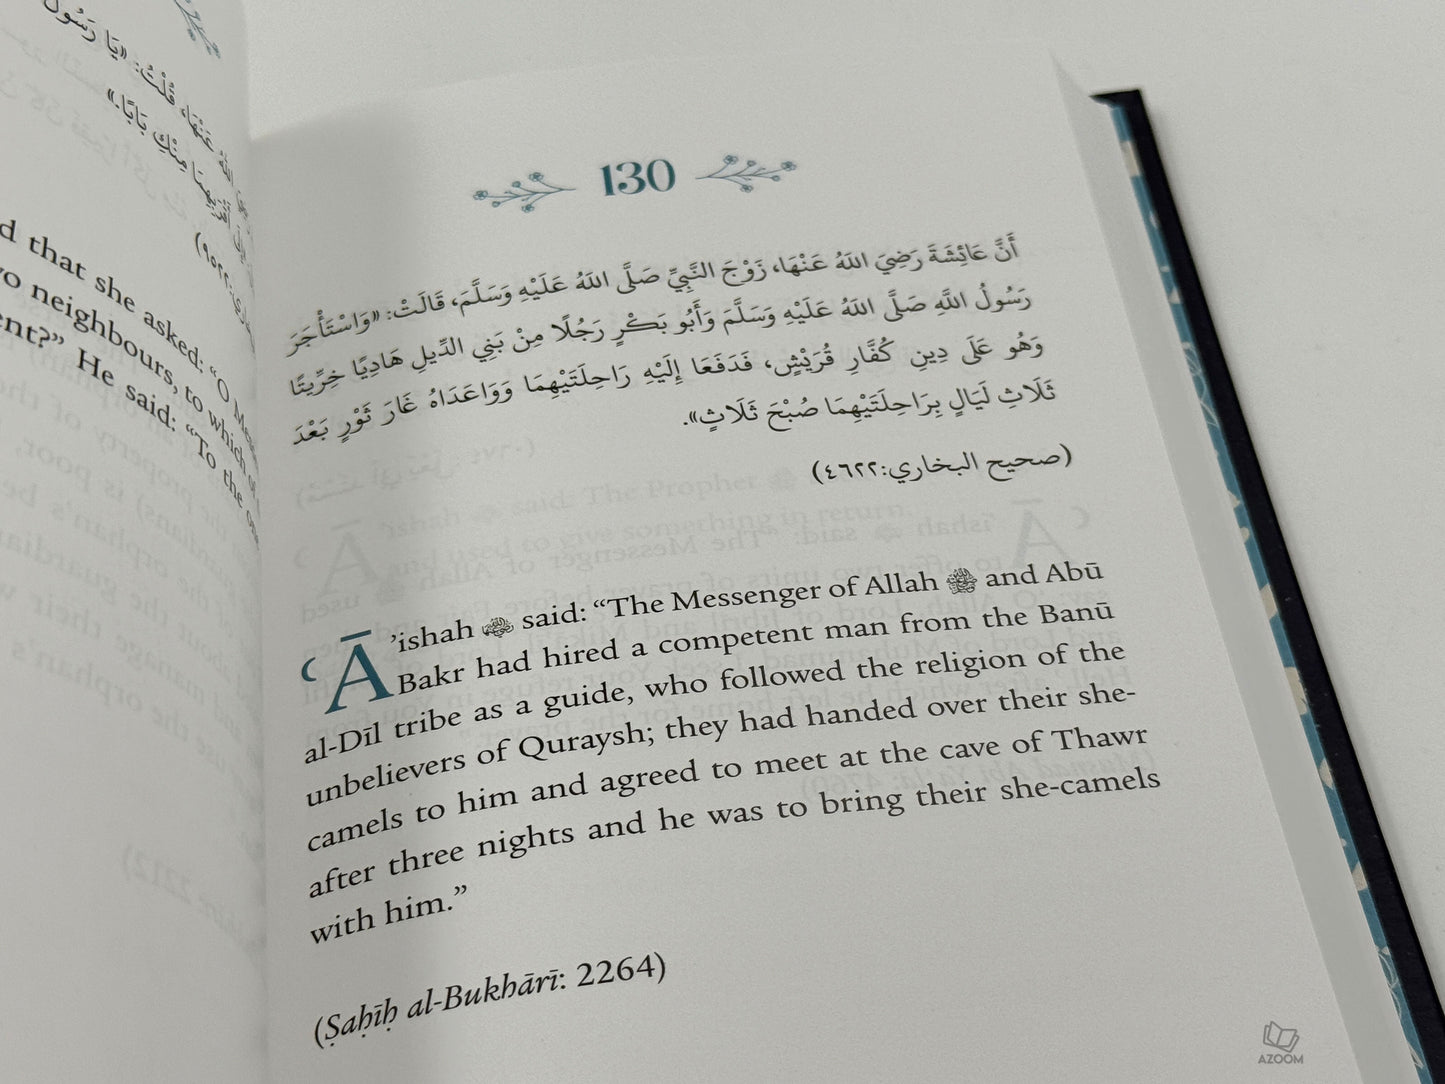 يَا رَسُولَ
اللهُ عَنْهَا، قُلْتُ:
أَقْرَبِهِمَا مِنْكِ بَابًا».
d that she asked: “O Mess
o neighbours, to which of
ent?” He said: “To the one
130
أَنَّ عَائِشَةَ رَضِيَ اللهُ عَنْهَا، زَوْجَ النَّبِيِّ صَلَّى اللهُ عَلَيْهِ وَسَلَّمَ، قَالَتْ: «وَاسْتَأْجَرَ
رَسُولُ اللَّهِ صَلَّى اللهُ عَلَيْهِ وَسَلَّمَ وَأَبُو بَكْرٍ رَجُلًا مِنْ بَنِي الدِّيلِ هَادِيًا خِرِّيتًا
وَهُو عَلَى دِينِ كُفَّارِ قُرَيْشٍ، فَدَفَعَا إِلَيْهِ رَاحِلَتَيْهِمَا وَوَاعَدَاهُ غَارَ ثَوْرٍ بَعْدَ
ثَلَاثِ لَيَالٍ بِرَاحِلَتَيْهِمَا صُبْحَ ثَلَاثٍ».
(صحيح البخاري:٤٦٢٢)
ʿĀ’ishah ﵂ said: “The Messenger of Allah ﷺ and Abū
Bakr had hired a competent man from the Banū
al-Dīl tribe as a guide, who followed the religion of the
unbelievers of Quraysh; they had handed over their she-
camels to him and agreed to meet at the cave of Thawr
after three nights and he was to bring their she-camels
with him.”
(Ṣaḥīḥ al-Bukhārī: 2264)
AZOOM